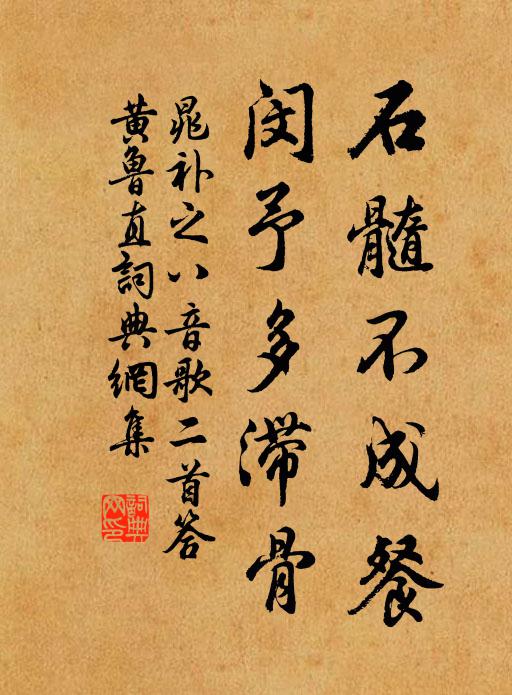 石髓不成餐
闵予多滞骨
晁补之八音歌二首答
黄鲁直詞典網集
詞典
网印